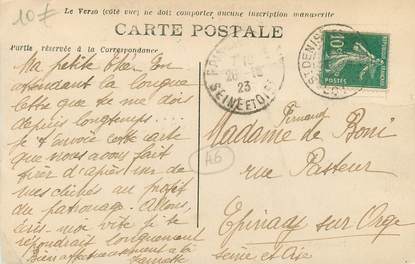 10F
Le Verso (côté vue) ne doit comporter aucune inscription manuscrite
CARTE POSTALE
Partie réservée à la Correspondance
Ma petite
attendant la longue
lettre que tu me dois
depuis longtemps....
je t'envoie cette carte
que nous avons fait
tirer d'après un de
mes clichés au profit
du patronage. Allons,
écris-moi vite je te
répondrais longuement
Bien affectueusement à toi
SEINE ET OISE
23
ST DENIS
10
POSTES
A6
Fernand
Madame de Boni
rue Pasteur
Epinay sur Orge
Seine et Oise